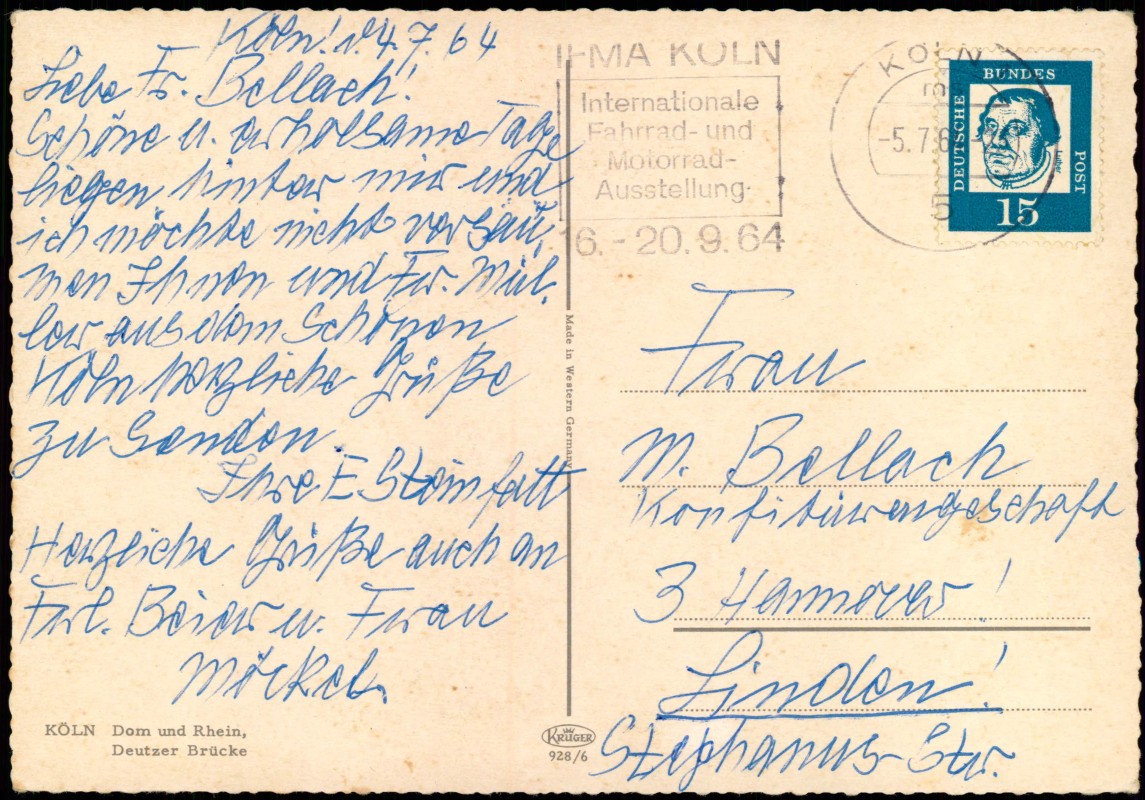 Köln! d. 4.7.64
Liebe Fr. Bellach!
Schöne u. erholsame Tage
liegen hinter mir und
ich möchte nicht versäu,
men Ihnen und Fr. Mül,
ler aus dem Schönen
Köln herzliche Grüße
zu senden.
Ihre E Steinfatt
Herzliche Grüße auch an
Frl. Beier u. Frau
Möckel.
KÖLN Dom und Rhein,
Deutzer Brücke
Made in Western Germany
KRÜGER
928/6
IFMA KÖLN
Internationale
Fahrrad- und
Motorrad-
Ausstellung
16. - 20.9.64
KÖLN
-5.7.6
5
DEUTSCHE BUNDES POST
Luther
15
Frau
M. Bellach
Konfitürengeschäft
3 Hannover!
Linden!
Stephanus-Str.